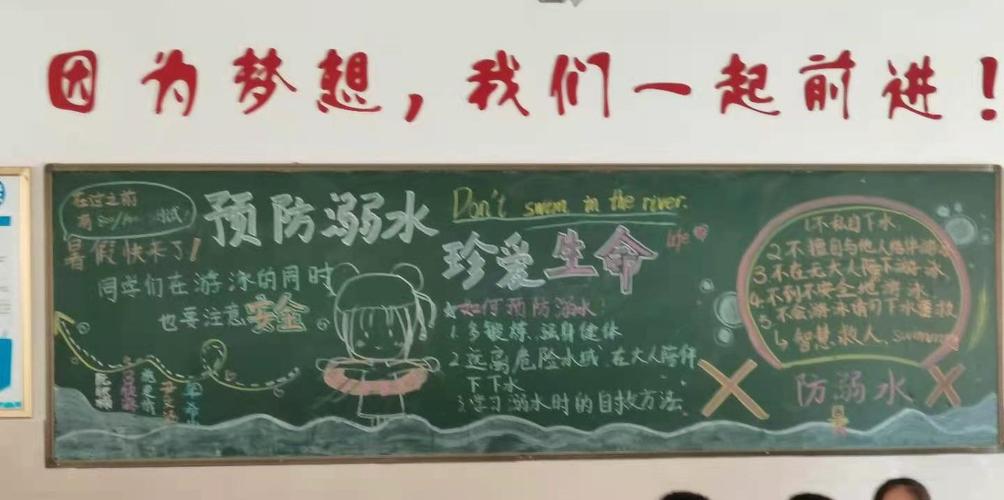 因为梦想，我们一起前进！
在这之前
暑假快来了！
同学们在游泳的同时
也要注意安全
预防溺水
Don't swim in the river.
珍爱生命
life
☆如何预防溺水：
1.多锻炼、强身健体
2.远离危险水域，在大人陪伴
下下水
3.学习溺水时的自救方法
1.不私自下水，
2.不擅自与他人结伴游泳
3.不在无大人陪下游泳
4.不到不安全地游泳
5.不会游泳请勿下水重救
6.智慧救人.
防溺水